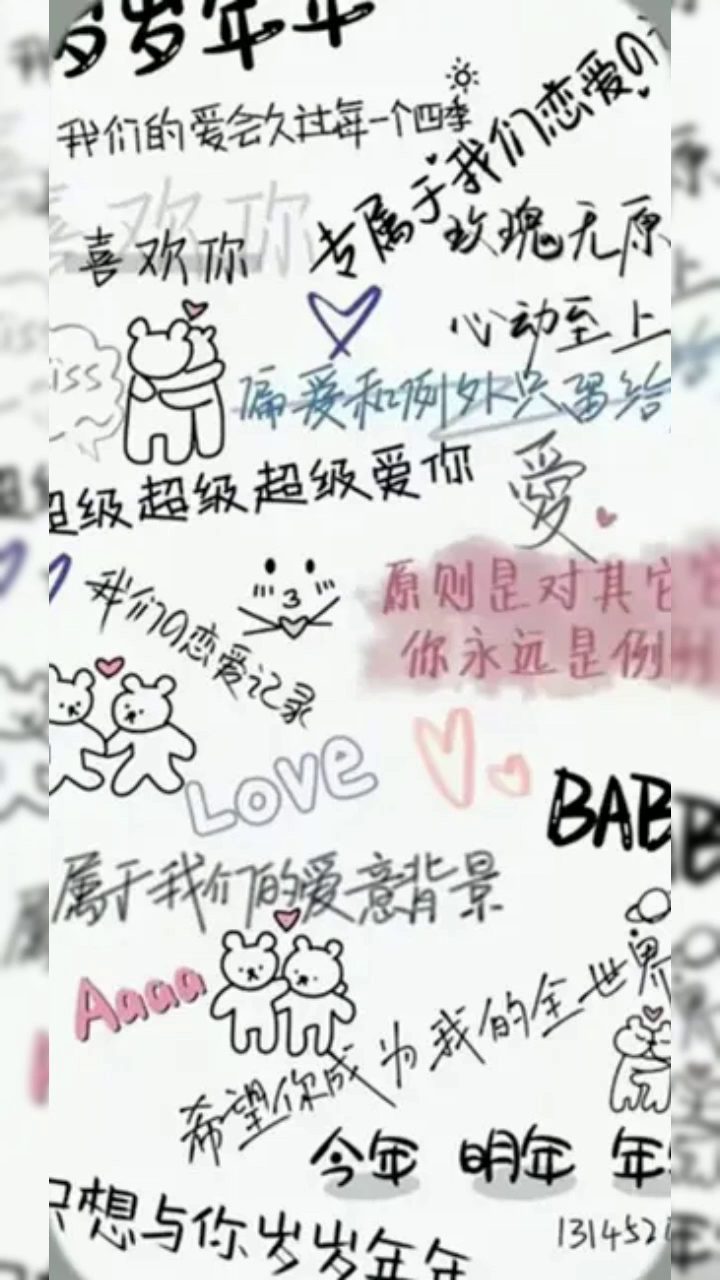 岁岁年年
我们的爱会久过每一个四季
专属于我们恋爱の
喜欢你
喜欢你
玫瑰无原
心动至上
iss
偏爱和例外只留给
超级超级超级爱你
爱
我们の恋爱记录
原则是对其它
你永远是例
LOVE
BAB
属于我们的爱意背景
Aaaa
希望你成为我的全世界
今年 明年 年
只想与你岁岁年年
1314521